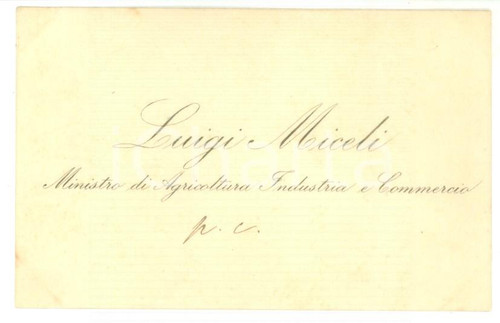 Luigi Miceli
Ministro di Agricoltura Industria e Commercio
p. c.